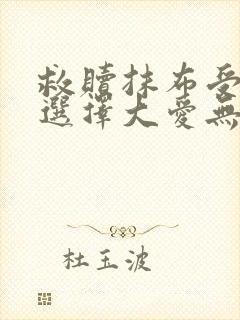 救贖抹布受
選擇大愛無
杜玉波